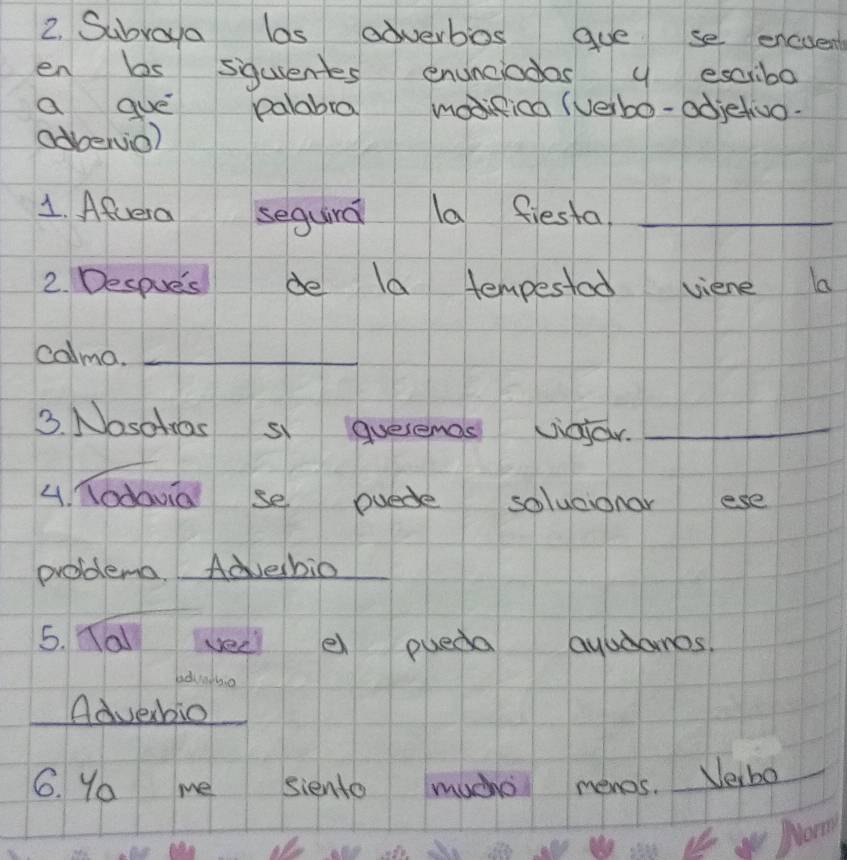 2. Subraya los adverbios que se encuent
en los siguientes enunciados y escriba
a qué palabra modifica (verbo-adjetivo-
adbervio)
1. Afuera seguirá la fiesta.
2. Después de la tempestad viene la
calma.
3. Nosotras si queremos viajar.
4. Todavía se puede solucionar ese
problema. Adverbio
5. Tal vez el pueda ayudarnos.
adverbio
Adverbio
6. Ya me siento mucho menos. Verbo
Norm